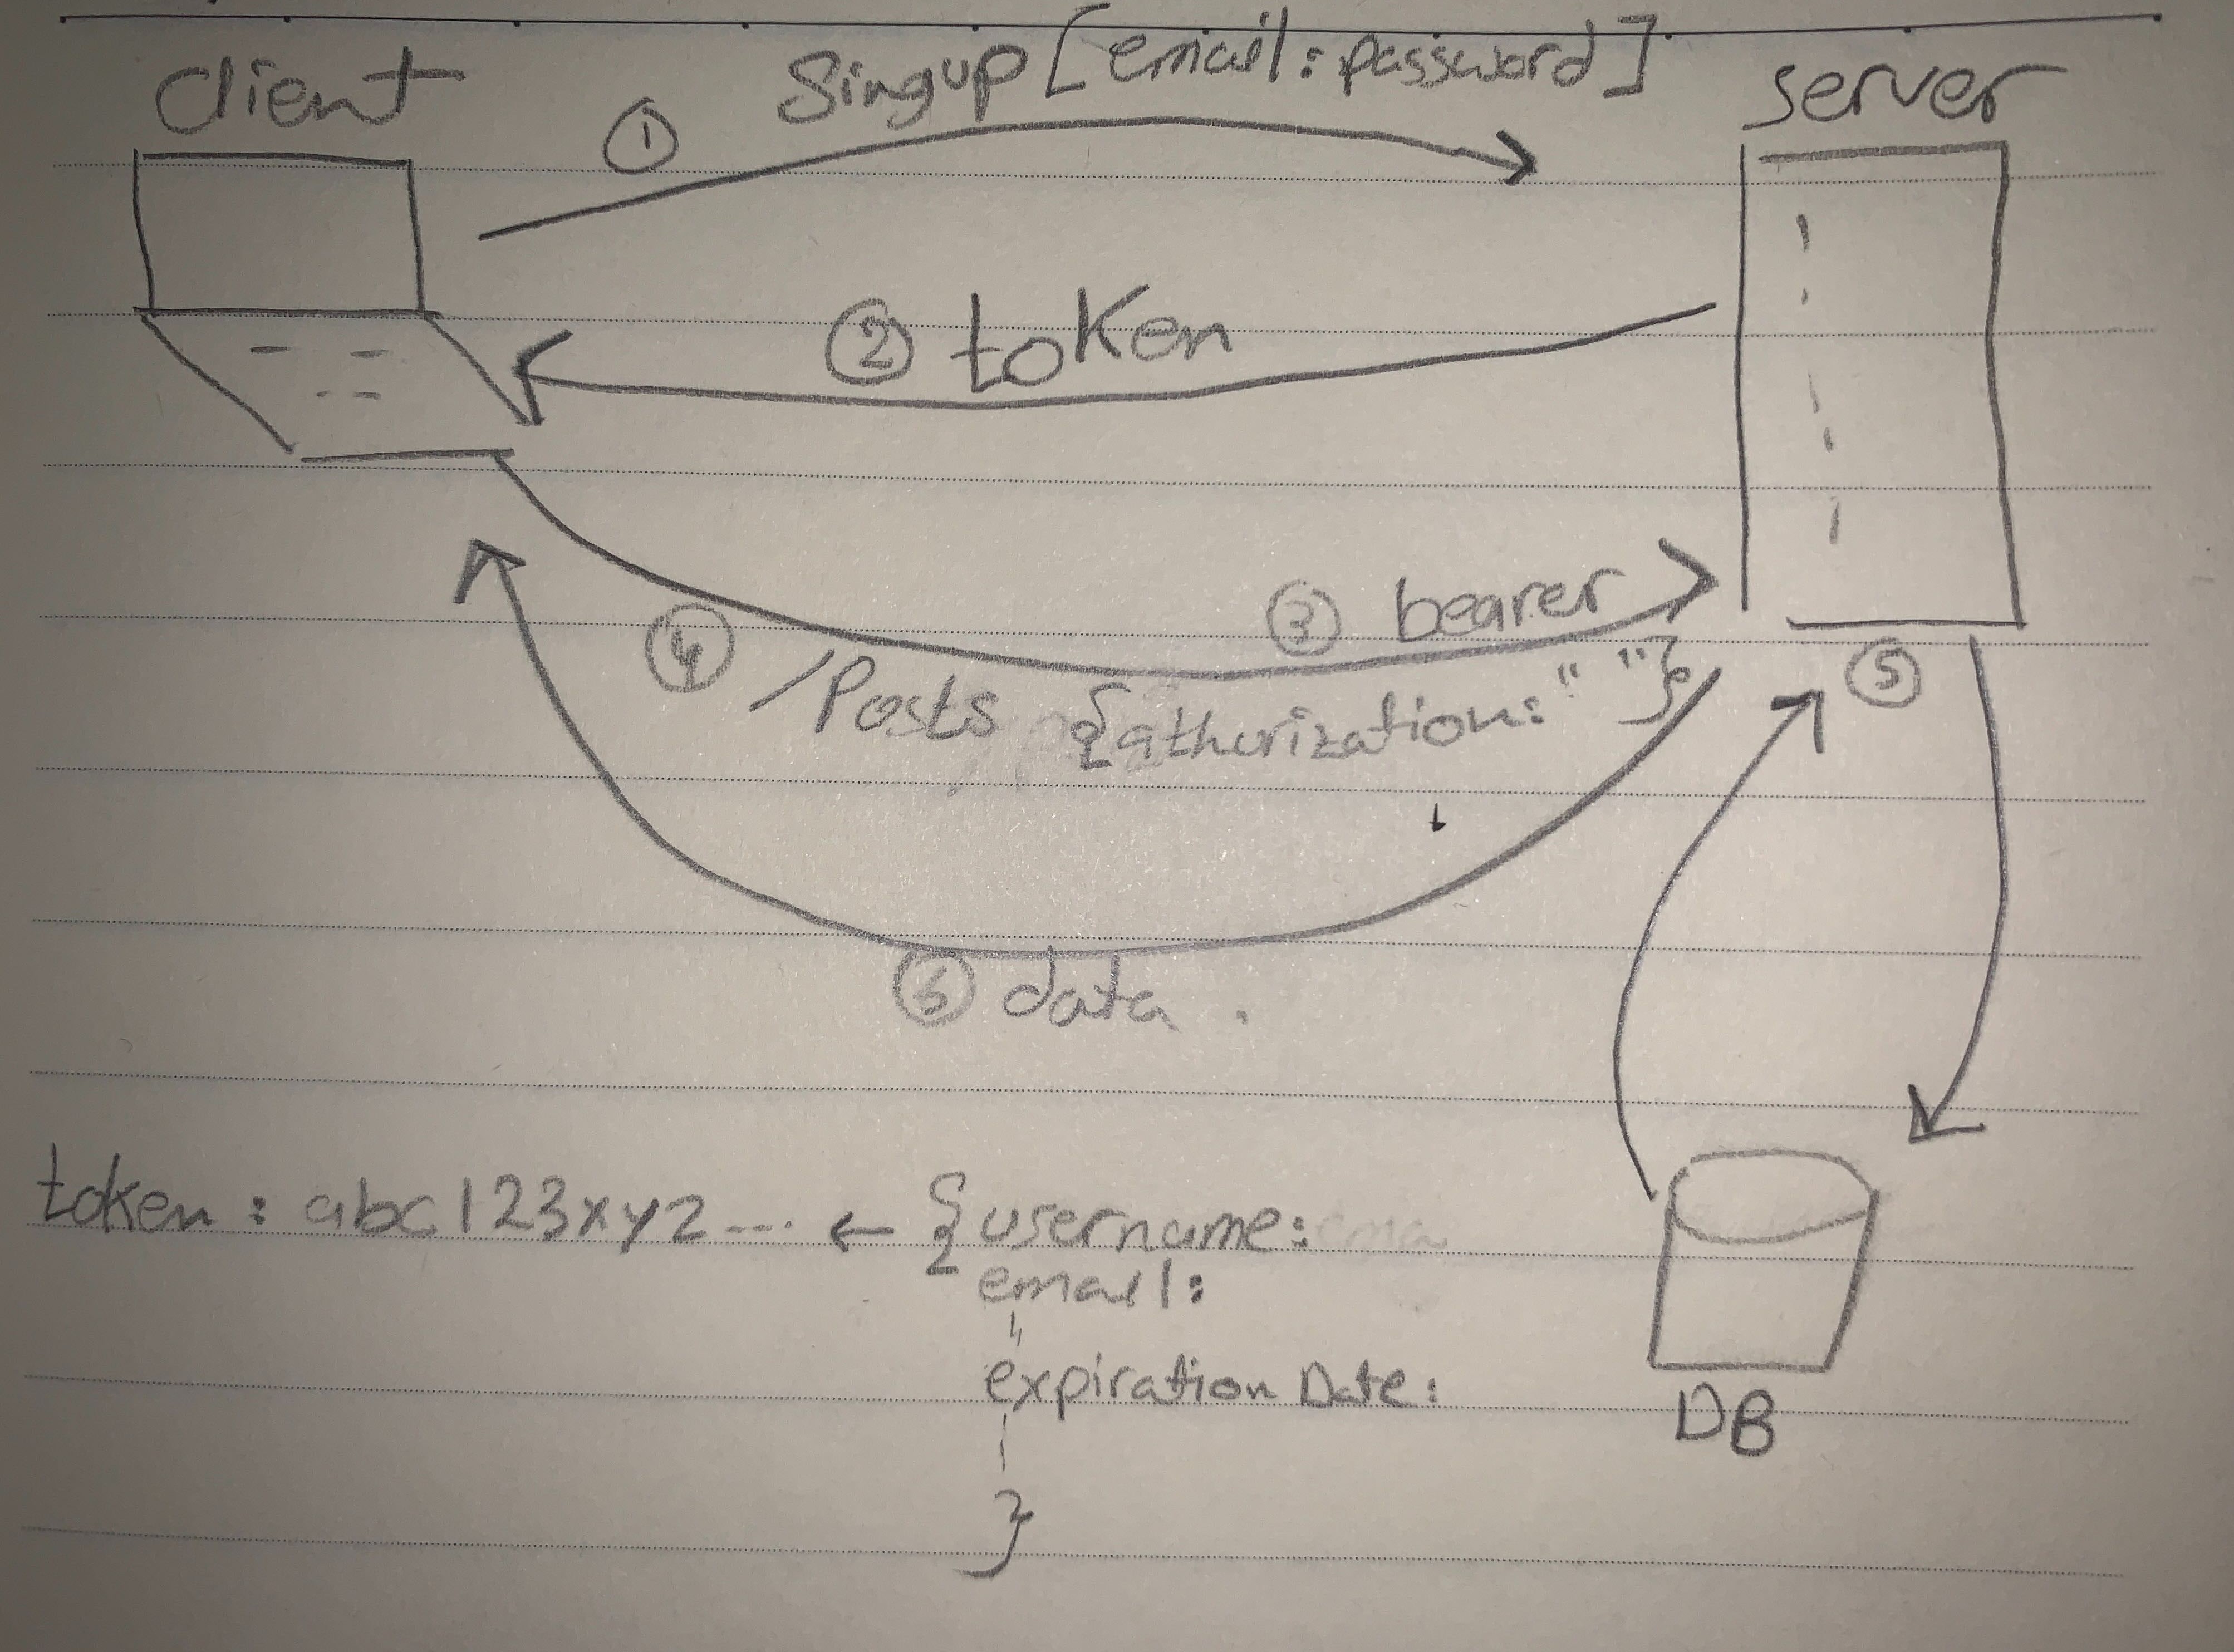 client
① Singup [email:password]
server
② token
③ bearer
④ /Posts {athorization: " "}
⑤
⑥ data.
token: abc123xyz... ← {username: ema
email:
"
expiration Date:
}
DB